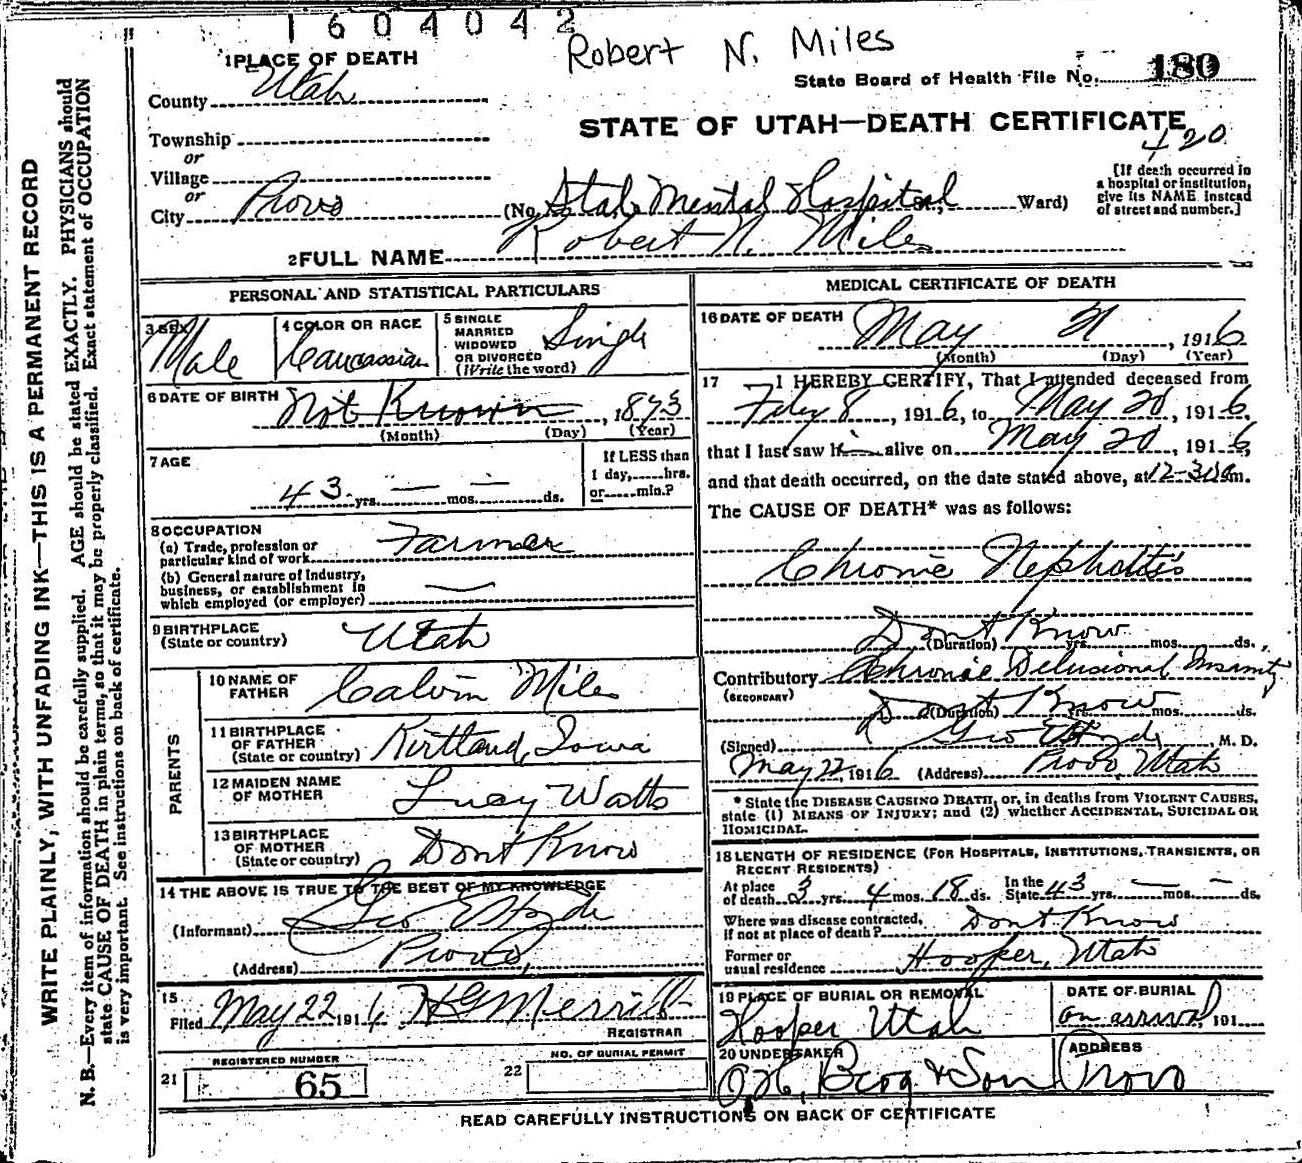 1604042
Robert N. Miles
1 PLACE OF DEATH
State Board of Health File No. 180
County Utah
STATE OF UTAH—DEATH CERTIFICATE
420
Township
or
Village
or
City Provo
(No. State Mental Hospital St., Ward)
[If death occurred in
a hospital or institution,
give its NAME instead
of street and number.]
2 FULL NAME Robert N. Miles
PERSONAL AND STATISTICAL PARTICULARS
3 SEX
Male
4 COLOR OR RACE
Caucassian
5 SINGLE
MARRIED
WIDOWED
OR DIVORCED
(Write the word)
Single
6 DATE OF BIRTH Not Known, 1873
(Month) (Day) (Year)
7 AGE
43 yrs. — mos. — ds.
If LESS than
1 day, hrs.
or min.?
8 OCCUPATION
(a) Trade, profession or
particular kind of work Farmer
(b) General nature of Industry,
business, or establishment in
which employed (or employer) —
9 BIRTHPLACE
(State or country) Utah
PARENTS
10 NAME OF
FATHER Calvin Miles
11 BIRTHPLACE
OF FATHER
(State or country) Kirtland, Iowa
12 MAIDEN NAME
OF MOTHER Lucy Watts
13 BIRTHPLACE
OF MOTHER
(State or country) Dont Know
14 THE ABOVE IS TRUE TO THE BEST OF MY KNOWLEDGE
(Informant) Geo E Hyde
(Address) Provo,
15
Filed May 22 1916 H G Merrill
REGISTRAR
REGISTERED NUMBER
21 65
NO. OF BURIAL PERMIT
22
MEDICAL CERTIFICATE OF DEATH
16 DATE OF DEATH
May 21, 1916
(Month) (Day) (Year)
17 I HEREBY CERTIFY, That I attended deceased from
Feby 8, 1916, to May 20, 1916,
that I last saw him alive on May 20, 1916,
and that death occurred, on the date stated above, at 12-30 a m.
The CAUSE OF DEATH* was as follows:
Chronic Nephritis
Dont Know
(Duration) yrs. mos. ds.
Contributory Chronic Delusional Insanity
(SECONDARY)
Dont Know
(Duration) yrs. mos. ds.
(Signed) Geo E Hyde M. D.
May 22, 1916 (Address) Provo, Utah
* State the DISEASE CAUSING DEATH, or, in deaths from VIOLENT CAUSES,
state (1) MEANS OF INJURY; and (2) whether ACCIDENTAL, SUICIDAL OR
HOMICIDAL.
18 LENGTH OF RESIDENCE (FOR HOSPITALS, INSTITUTIONS, TRANSIENTS, OR
RECENT RESIDENTS)
At place
of death 3 yrs. 4 mos. 18 ds.
In the
State 43 yrs. — mos. — ds.
Where was disease contracted,
if not at place of death? Dont Know
Former or
usual residence Hooper, Utah
19 PLACE OF BURIAL OR REMOVAL
Hooper Utah
DATE OF BURIAL
on arrival, 191
20 UNDERTAKER
& Son
ADDRESS
Provo
READ CAREFULLY INSTRUCTIONS ON BACK OF CERTIFICATE
WRITE PLAINLY, WITH UNFADING INK—THIS IS A PERMANENT RECORD
N. B.—Every item of information should be carefully supplied. AGE should be stated EXACTLY. PHYSICIANS should
state CAUSE OF DEATH in plain terms, so that it may be properly classified. Exact statement of OCCUPATION
is very important. See instructions on back of certificate.